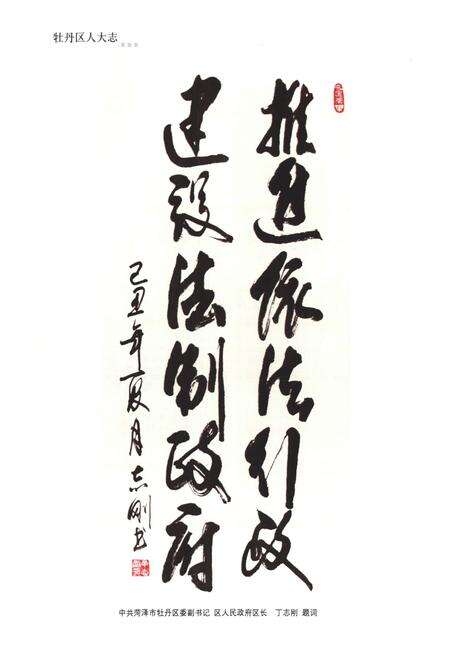 牡丹区人大志
推进依法行政
建设法制政府
己丑年夏月志刚书
中共菏泽市牡丹区委副书记 区人民政府区长 丁志刚 题词